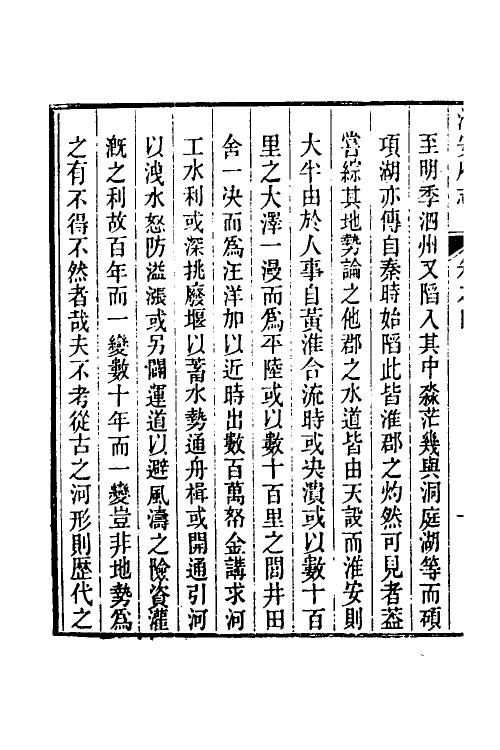 至明季泗州又陷入其中淼茫幾與洞庭湖等而碩
項湖亦傳自秦時始陷此皆淮郡之灼然可見者葢
嘗綜其地勢論之他郡之水道皆由天設而淮安則
大半由於人事自黃淮合流時或央潰或以數十百
里之大澤一漫而爲平陸或以數十百里之閭井田
舍一决而爲汪洋加以近時出數百萬帑金講求河
工水利或深挑廢堰以蓄水勢通舟楫或開通引河
以洩水怒防溢漲或另闢運道以避風濤之險資灌
漑之利故百年而一變數十年而一變豈非地勢爲
之有不得不然者哉夫不考從古之河形則歷代之